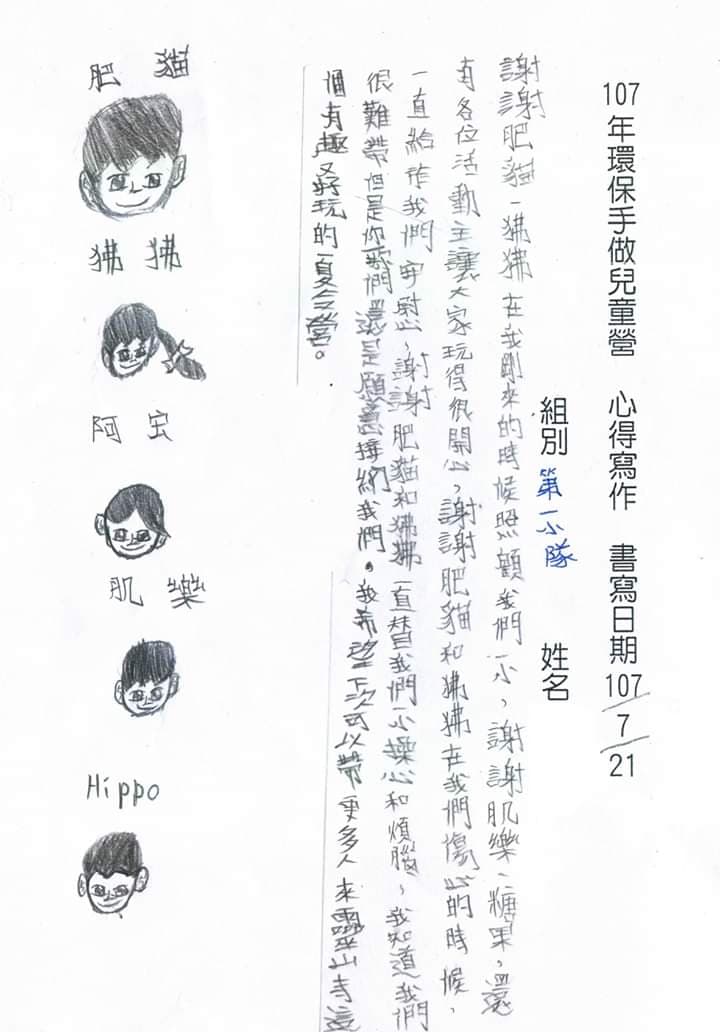 107年環保手做兒童營 心得寫作 書寫日期107/7/21
組別 第一小隊 姓名
謝謝肥貓、狒狒在我剛來的時候照顧我們一小,謝謝肌樂、糖果,還
有各位活動主讓大家玩得很開心,謝謝肥貓和狒狒在我們傷心的時候,
一直給作我們安慰,謝謝肥貓和狒狒一直替我們一小操心和煩腦,我知道我們
很難帶但是你們還是願意接納我們。我希望下次可以帶更多人來靈巫山寺這
個有趣又好玩的夏令營。
肥貓
狒狒
阿宝
肌樂
Hippo